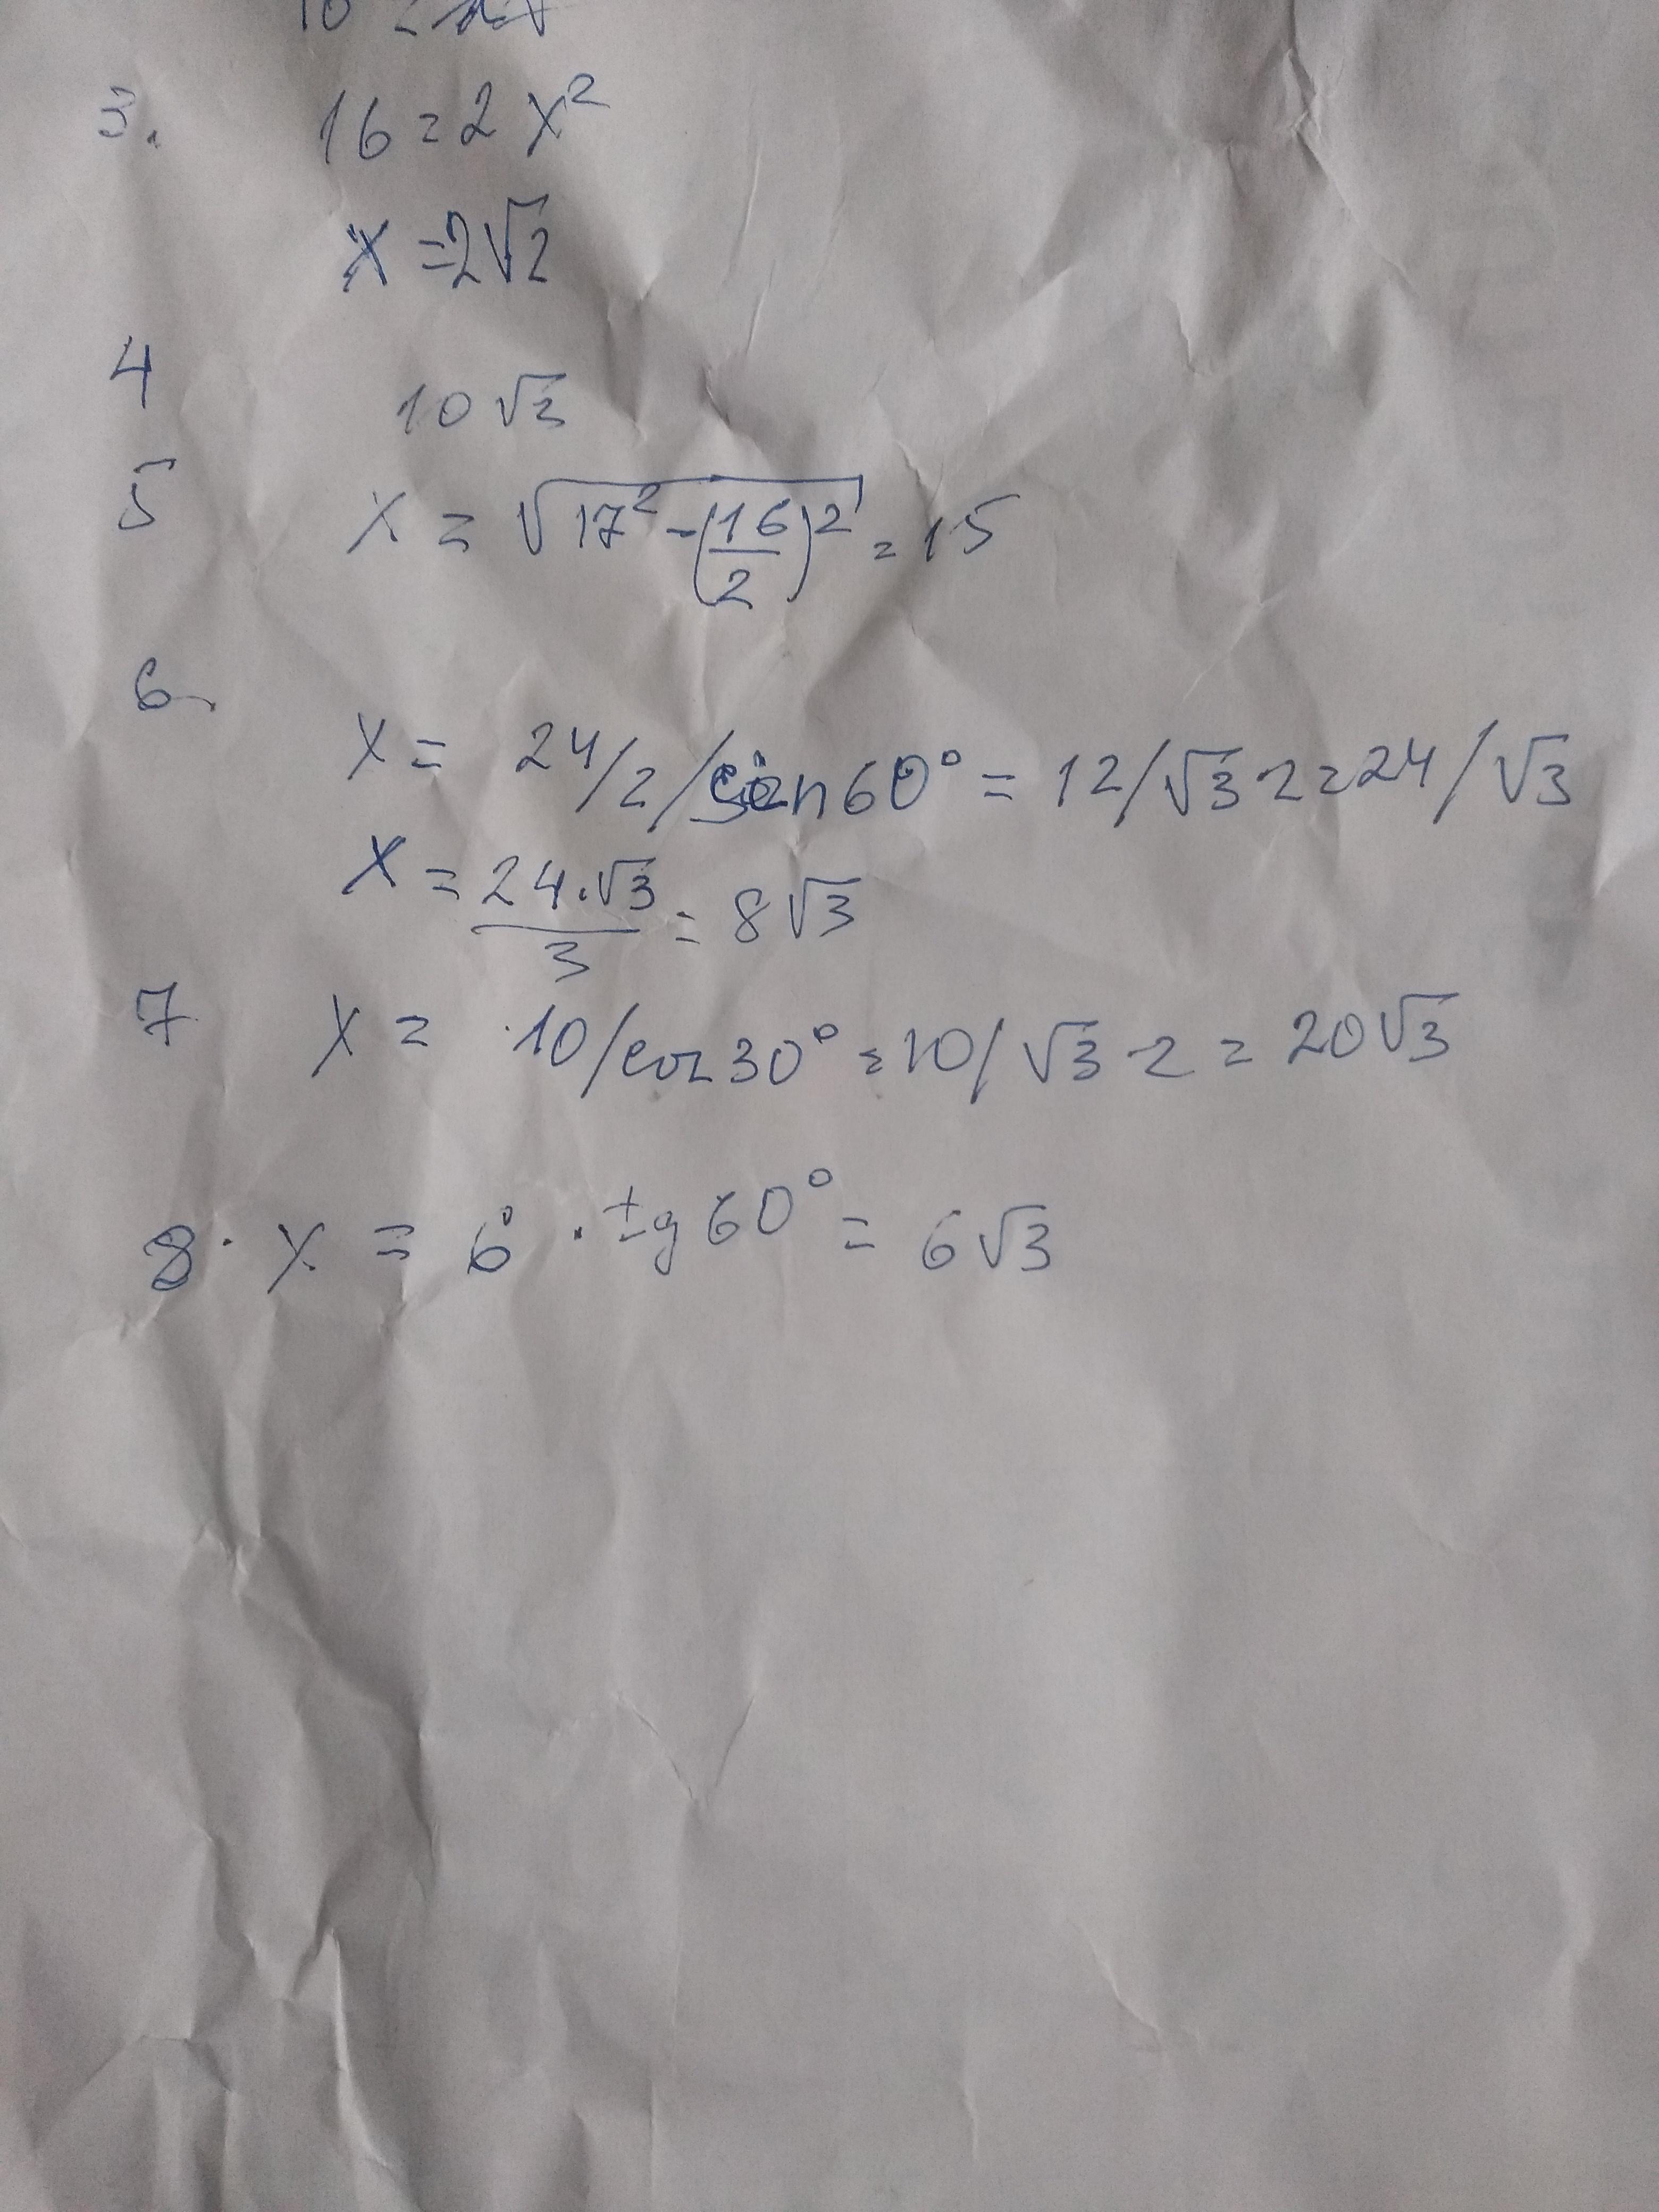 3. 16 = 2 x²
x = 2√2
4
10 √3
5 x = √(17² - (16/2)²) = 15
6.
x = 24/2/sin60° = 12/√3 · 2 = 24/√3
x = 24·√3/3 = 8√3
7 x = 10/cos30° = 10/√3 · 2 = 20√3
8. x = 6 · tg60° = 6√3